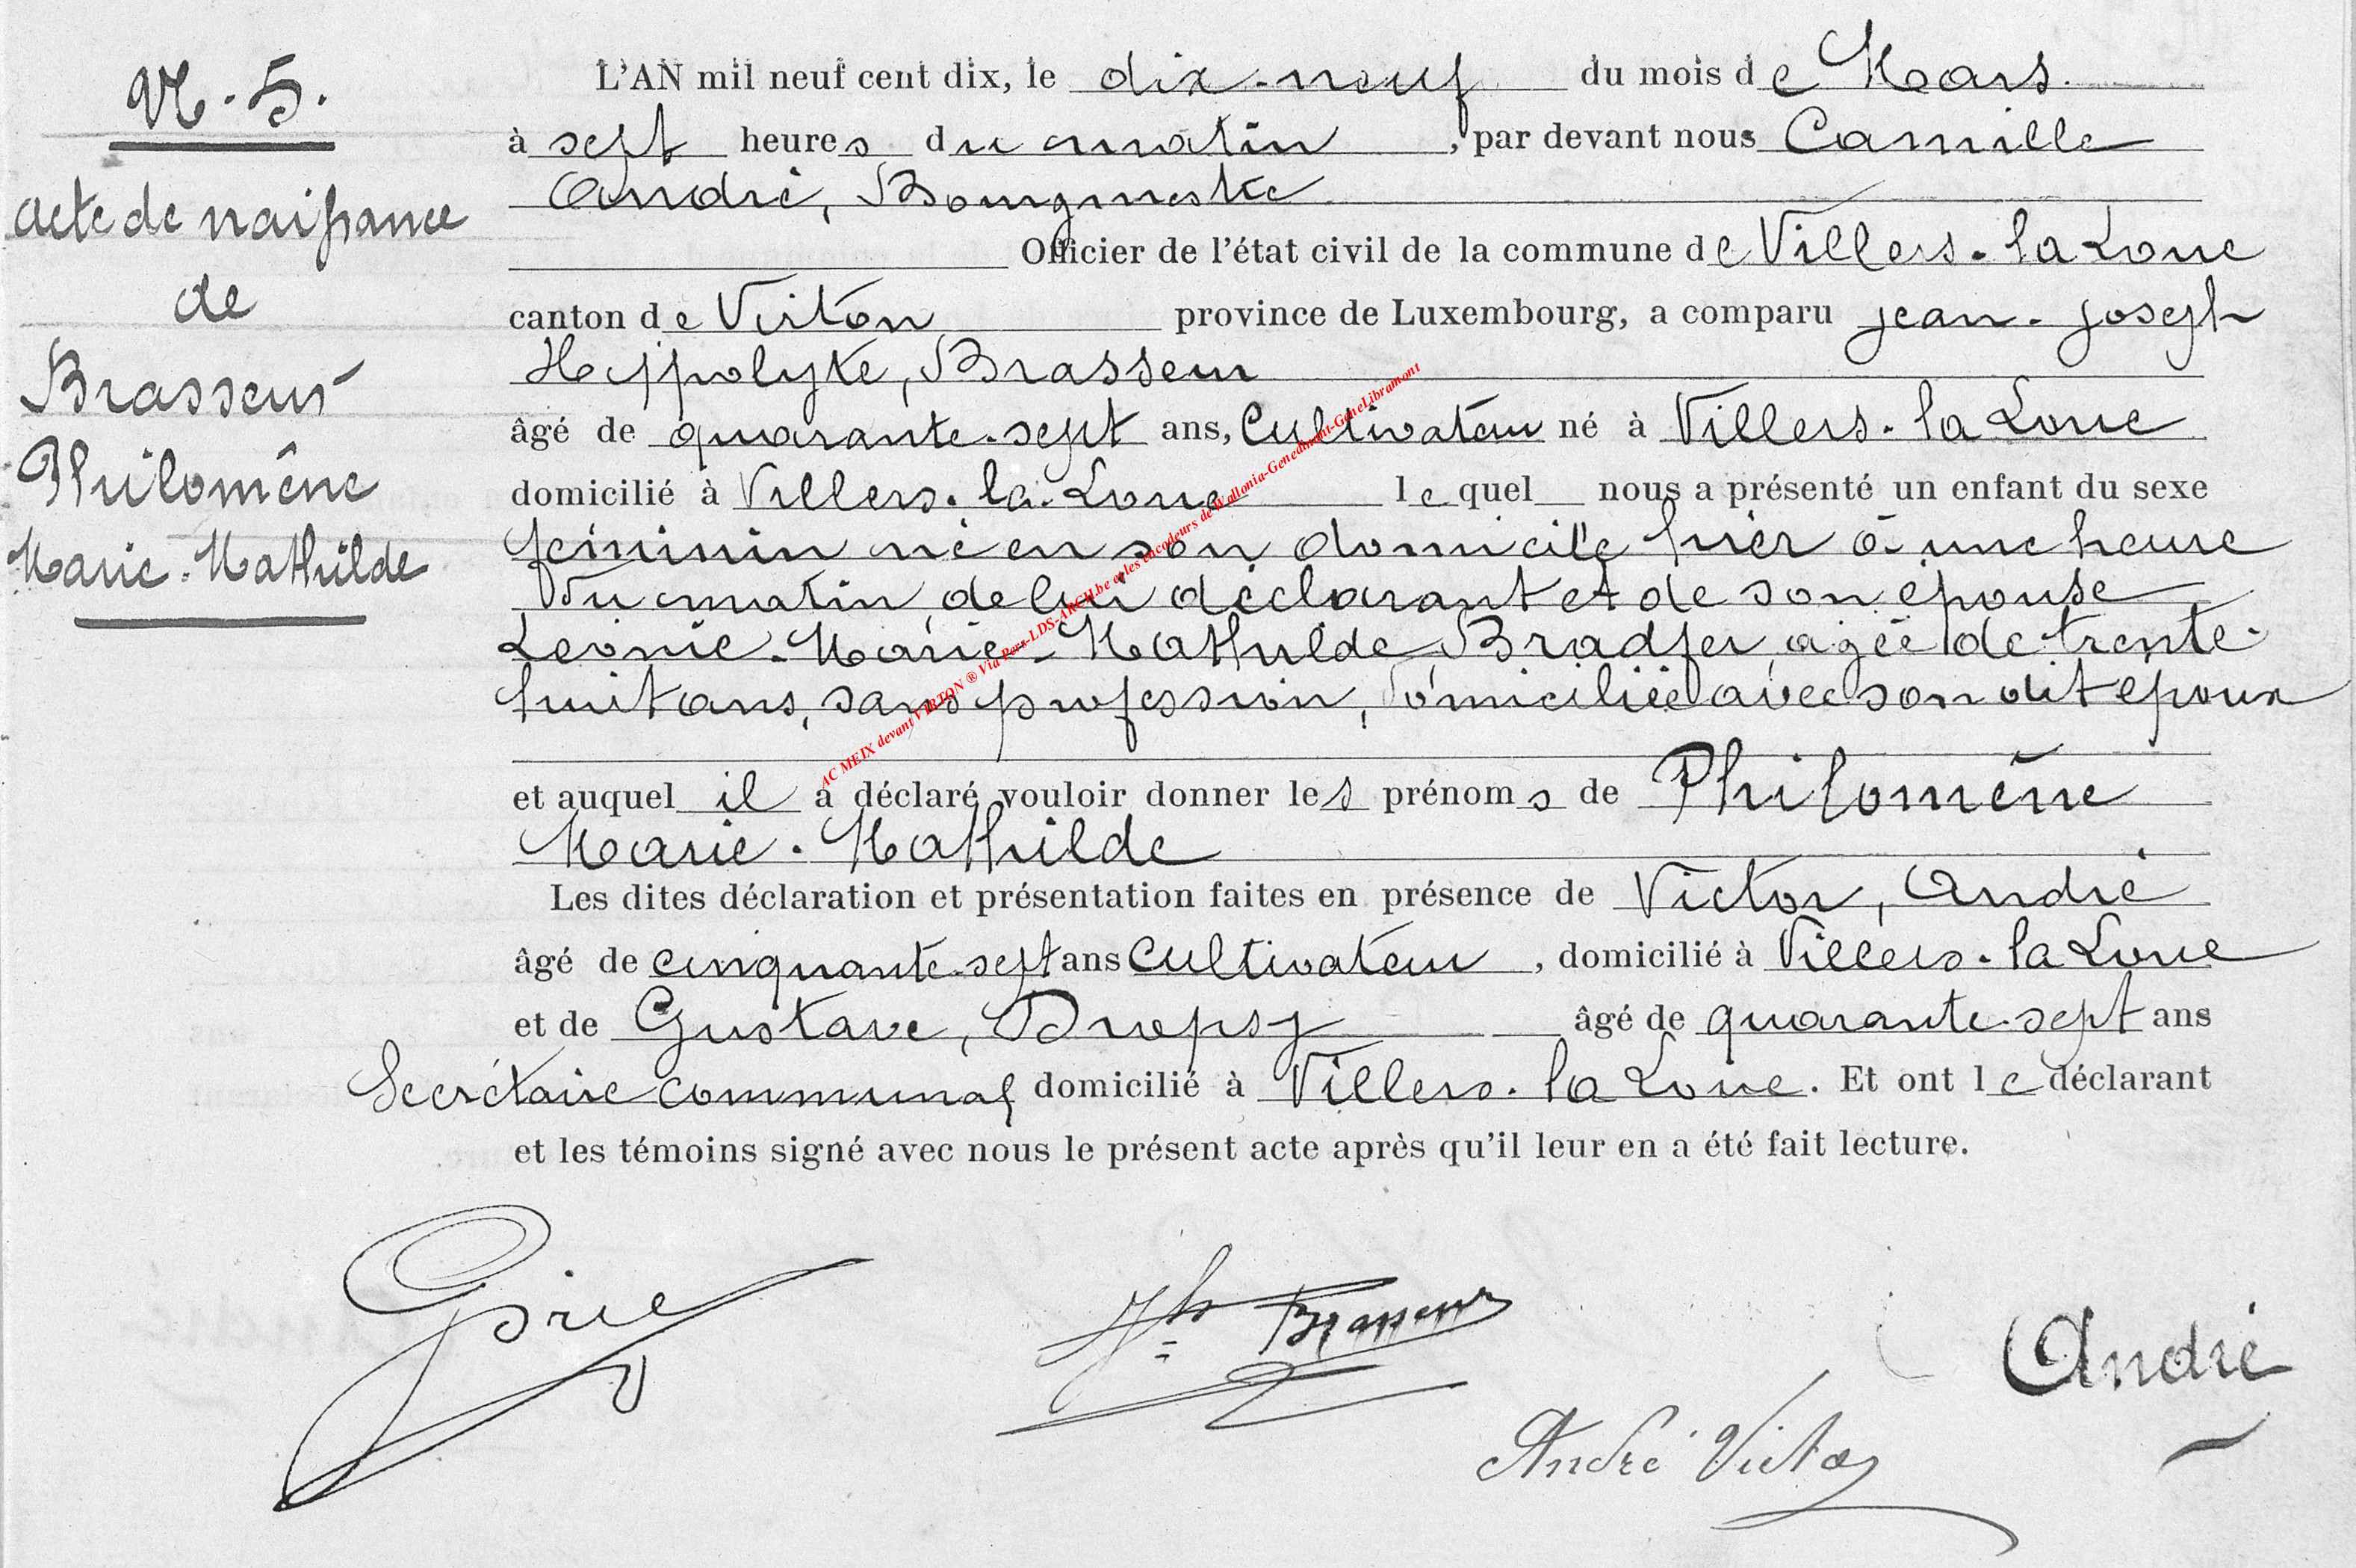 N. 5.
acte de naissance
de
Brasseur
Philomène
Marie-Mathilde
L'AN mil neuf cent dix, le dix-neuf du mois de Mars.
à sept heures du matin, par devant nous Camille
André, Bourgmestre
Officier de l'état civil de la commune de Villers-la Loue
canton de Virton province de Luxembourg, a comparu jean-joseph
Hyppolyte, Brasseur
âgé de quarante-sept ans, Cultivateur né à Villers-la Loue
domicilié à Villers-la-Loue lequel nous a présenté un enfant du sexe
féminin né en son domicile hier à une heure
du matin, de lui déclarant et de son épouse
Léonie-Marie-Mathilde, Bradfer, agée de trente-
huit ans, sans profession, domiciliée avec son dit époux
et auquel il a déclaré vouloir donner les prénoms de Philomène
Marie-Mathilde
Les dites déclaration et présentation faites en présence de Victor, André
âgé de cinquante-sept ans Cultivateur, domicilié à Villers-la Loue
et de Gustave, Dropsy âgé de quarante-sept ans
Secrétaire communal domicilié à Villers-la Loue. Et ont le déclarant
et les témoins signé avec nous le présent acte après qu'il leur en a été fait lecture.
Jh Brasseur
André
André Victor
AC MEIX devant VIRTON ® Via Pers-LDS-ARCH.be et les encodeurs de Wallonia-Genedinant-GeneLibramont